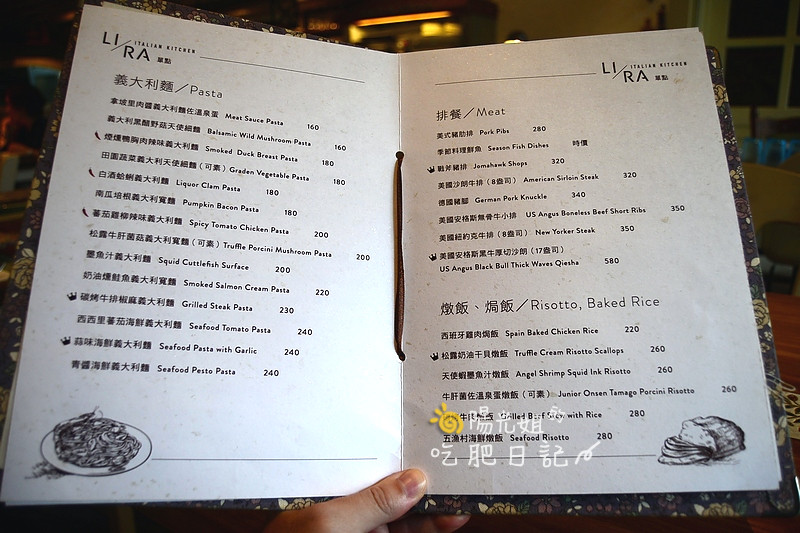 LI/RA ITALIAN KITCHEN 單點
義大利麵／Pasta
拿坡里肉醬義大利麵佐溫泉蛋 Meat Sauce Pasta 160
義大利黑醋野菇天使細麵 Balsamic Wild Mushroom Pasta 160
煙燻鴨胸肉辣味義大利麵 Smoked Duck Breast Pasta 180
田園蔬菜義大利天使細麵（可素）Graden Vegetable Pasta 180
白酒蛤蜊義大利麵 Liquor Clam Pasta 180
南瓜培根義大利寬麵 Pumpkin Bacon Pasta 180
蕃茄雞柳辣味義大利麵 Spicy Tomato Chicken Pasta 200
松露牛肝菌菇義大利寬麵（可素）Truffle Porcini Mushroom Pasta 200
墨魚汁義大利麵 Squid Cuttlefish Surface 200
奶油燻鮭魚義大利寬麵 Smoked Salmon Cream Pasta 220
碳烤牛排椒麻義大利麵 Grilled Steak Pasta 230
西西里蕃茄海鮮義大利麵 Seafood Tomato Pasta 240
蒜味海鮮義大利麵 Seafood Pasta with Garlic 240
青醬海鮮義大利麵 Seafood Pesto Pasta 240
LI/RA ITALIAN KITCHEN 單點
排餐／Meat
美式豬肋排 Pork Pibs 280
季節料理鮮魚 Season Fish Dishes 時價
戰斧豬排 Jomahawk Shops 320
美國沙朗牛排（8盎司）American Sirloin Steak 320
德國豬腳 German Pork Knuckle 340
美國安格斯無骨牛小排 US Angus Boneless Beef Short Ribs 350
美國紐約克牛排（8盎司）New Yorker Steak 350
美國安格斯黑牛厚切沙朗（17盎司）
US Angus Black Bull Thick Waves Qiesha 580
燉飯、焗飯／Risotto, Baked Rice
西班牙雞肉焗飯 Spain Baked Chicken Rice 220
松露奶油干貝燉飯 Truffle Cream Risotto Scallops 260
天使蝦墨魚汁燉飯 Angel Shrimp Squid Ink Risotto 260
牛肝菌佐溫泉蛋燉飯（可素）Junior Onsen Tamago Porcini Risotto 260
Grilled Beef Stew with Rice 280
五漁村海鮮燉飯 Seafood Risotto 280
陽光姐
吃肥日記